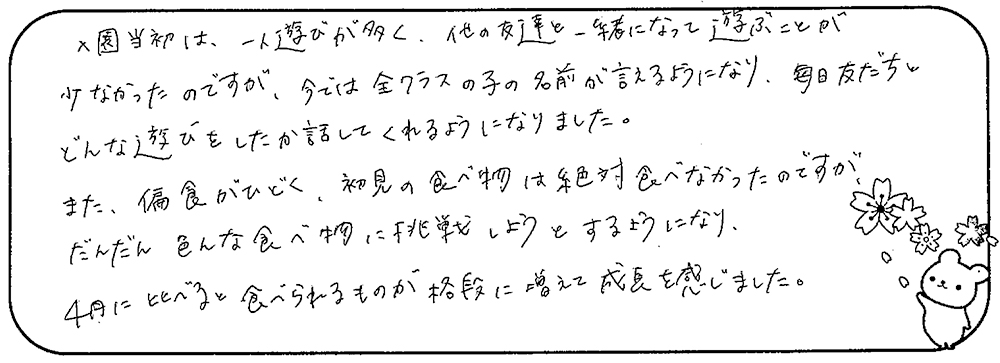 入園当初は、一人遊びが多く、他の友達と一緒になって遊ぶことが
少なかったのですが、今では全クラスの子の名前が言えるようになり、毎日友だちと
どんな遊びをしたか話してくれるようになりました。
また、偏食がひどく、初見の食べ物は絶対食べなかったのですが、
だんだん色んな食べ物に挑戦しようとするようになり、
4月に比べると食べられるものが格段に増えて成長を感じました。